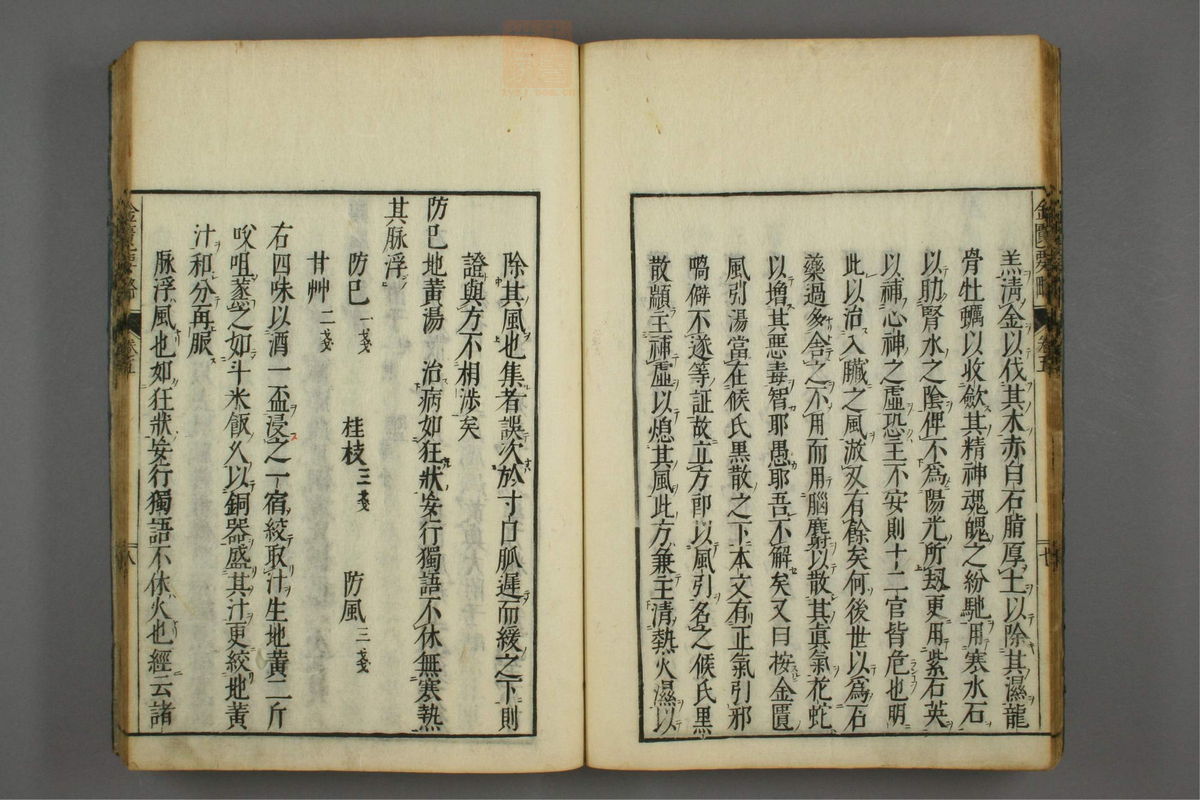 羔清金以伐其木赤白石脂厚土以除其濕龍
骨牡蠣以收歛其精神魂魄之紛馳用寒水石
以助腎水之陰俾不為陽光所刼更用紫石英
以補心神之虛恐主不安則十二官皆危也明
此以治入臟之風淑又有餘矣何後世以為石
藥過多舍之不用而用腦麝以散其真氣花蛇
以增其惡毒智耶愚耶吾不解矣又曰按金匱
風引湯當在候氏黑散之下本文有正氣引邪
喎僻不遂等証故立方即以風引名之候氏黑
散顓主補虛以熄其風此方兼主清熱火濕以
除其風也集者誤次於寸口脉遲而緩之下則
證與方不相涉矣
防已地黃湯 治病如狂狀妄行獨語不休無寒熱
其脉浮
防已一戔 桂枝三戔 防風三戔
甘艸二戔
右四味以酒一盃浸之一宿絞取汁生地黃二斤
㕮咀蒸之如斗米飯久以銅器盛其汁更絞地黃
汁和分再服
脉浮風也如狂狀妄行獨語不休火也經云諸
金匱要略
卷五
八